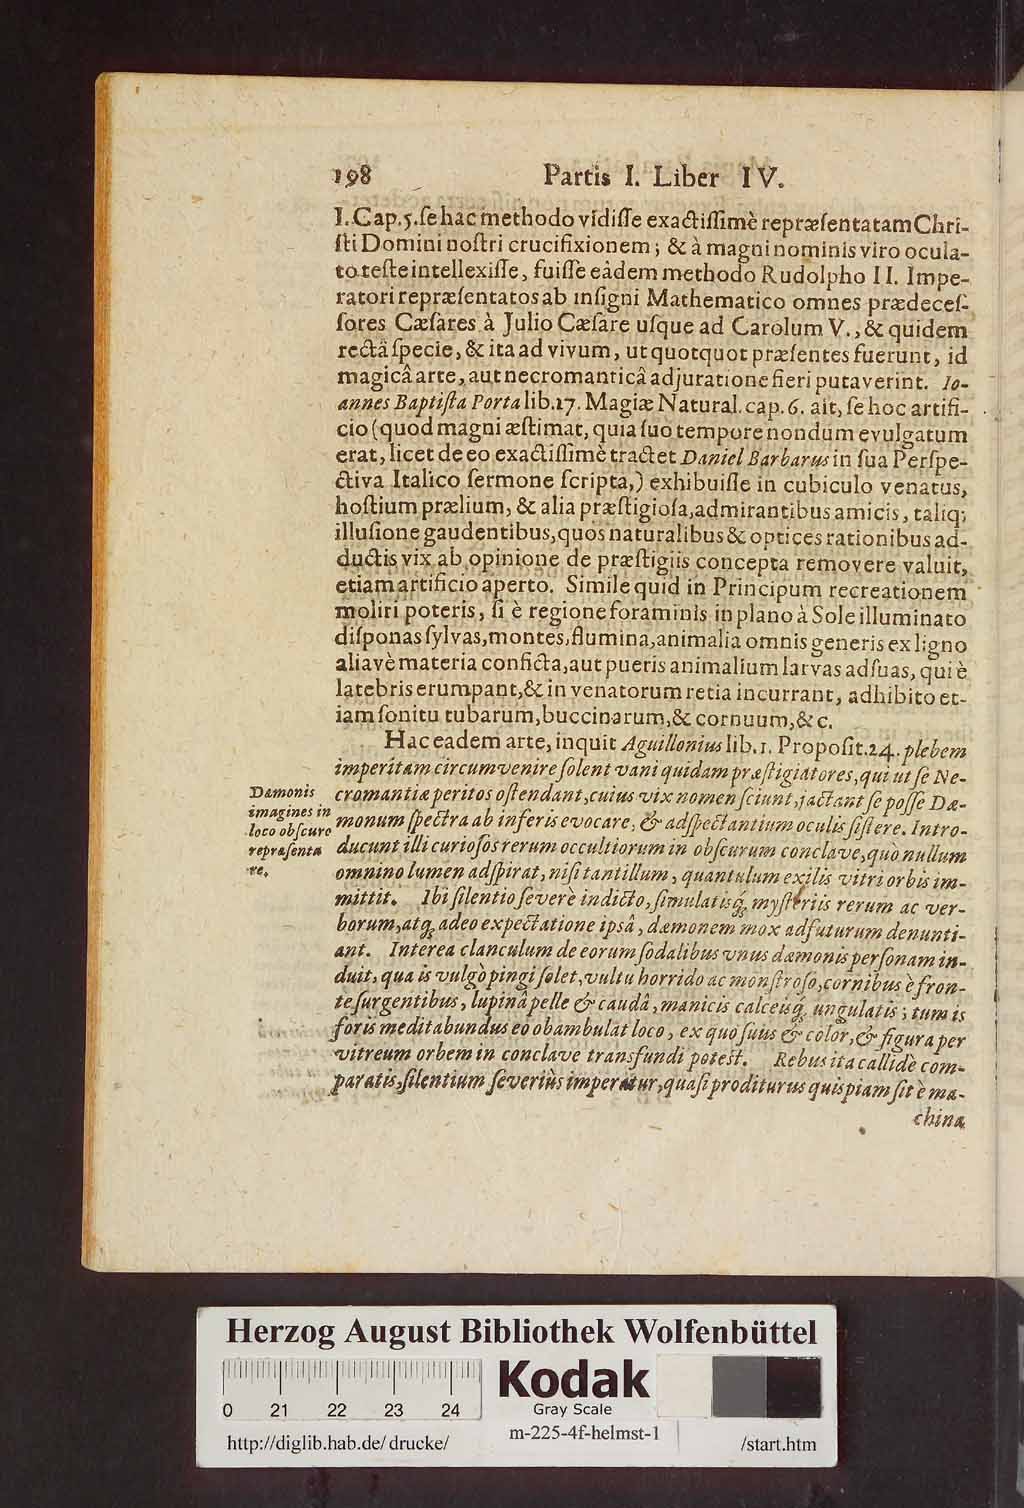 198 Partis I. Liber IV.
I. Cap. 5. ſe hac methodo vidiſſe exactiſſimè repræſentatam Chri-
ſti Domini noſtri crucifixionem; & à magni nominis viro ocula-
to teſte intellexiſſe, fuiſſe eâdem methodo Rudolpho II. Impe-
ratori repræſentatos ab inſigni Mathematico omnes prædeceſ-
ſores Cæſares à Julio Cæſare uſque ad Carolum V., & quidem
rectâ ſpecie, & ita ad vivum, ut quotquot præſentes fuerunt, id
magicâ arte, aut necromanticâ adjuratione fieri putaverint. Io-
annes Baptiſta Porta lib. 17. Magiæ Natural. cap. 6. ait, ſe hoc artifi-
cio (quod magni æſtimat, quia ſuo tempore nondum evulgatum
erat, licet de eo exactiſſimè tractet Daniel Barbarus in ſua Perſpe-
ctiva Italico ſermone ſcripta,) exhibuiſſe in cubiculo venatus,
hoſtium prælium, & alia præſtigioſa, admirantibus amicis, taliq;
illuſione gaudentibus, quos naturalibus & optices rationibus ad-
ductis vix ab opinione de præſtigiis concepta removere valuit,
etiam artificio aperto. Simile quid in Principum recreationem
moliri poteris, ſi è regione foraminis in plano à Sole illuminato
diſponas ſylvas, montes, flumina, animalia omnis generis ex ligno
aliavè materia conficta, aut pueris animalium larvas adſuas, qui è
latebris erumpant, & in venatorum retia incurrant, adhibito et-
iam ſonitu tubarum, buccinarum, & cornuum, &c.
Hac eadem arte, inquit Aguillonius lib. 1. Propoſit. 24. plebem
imperitam circumvenire ſolent vani quidam præſtigiatores, qui ut ſe Ne-
cromantiæ peritos oſtendant, cuius vix nomen ſciunt, jactant ſe poſſe Dæ-
monum ſpectra ab inferis evocare, & adſpectantium oculis ſiſtere. Intro-
ducunt illi curioſos rerum occultiorum in obſcurum conclave, quò nullum
omnino lumen adſpirat, niſi tantillum, quantulum exilis vitri orbis im-
mittit. Ibi ſilentio ſeverè indicto, ſimulatisq; myſteriis rerum ac ver-
borum, atq; adeo expectatione ipsâ, dæmonem mox adfuturum denunti-
ant. Interea clanculum de eorum ſodalibus vnus dæmonis perſonam in-
duit, qua is vulgò pingi ſolet, vultu horrido ac monſtroſo, cornibus è fron-
te ſurgentibus, lupinâ pelle & caudâ, manicis calceisq; ungulatis; tum is
foris meditabundus eo obambulat loco, ex quo ſuus & color, & figura per
vitreum orbem in conclave transfundi poteſt. Rebus ita callidè com-
paratis, ſilentium ſeveriùs imperatur, quaſi proditurus quispiam ſit è ma-
china
Dæmonis
imagines in
loco obſcuro
repræſenta
re.
Herzog August Bibliothek Wolfenbüttel
0 21 22 23 24
Kodak
Gray Scale
http://diglib.hab.de/drucke/ m-225-4f-helmst-1 /start.htm